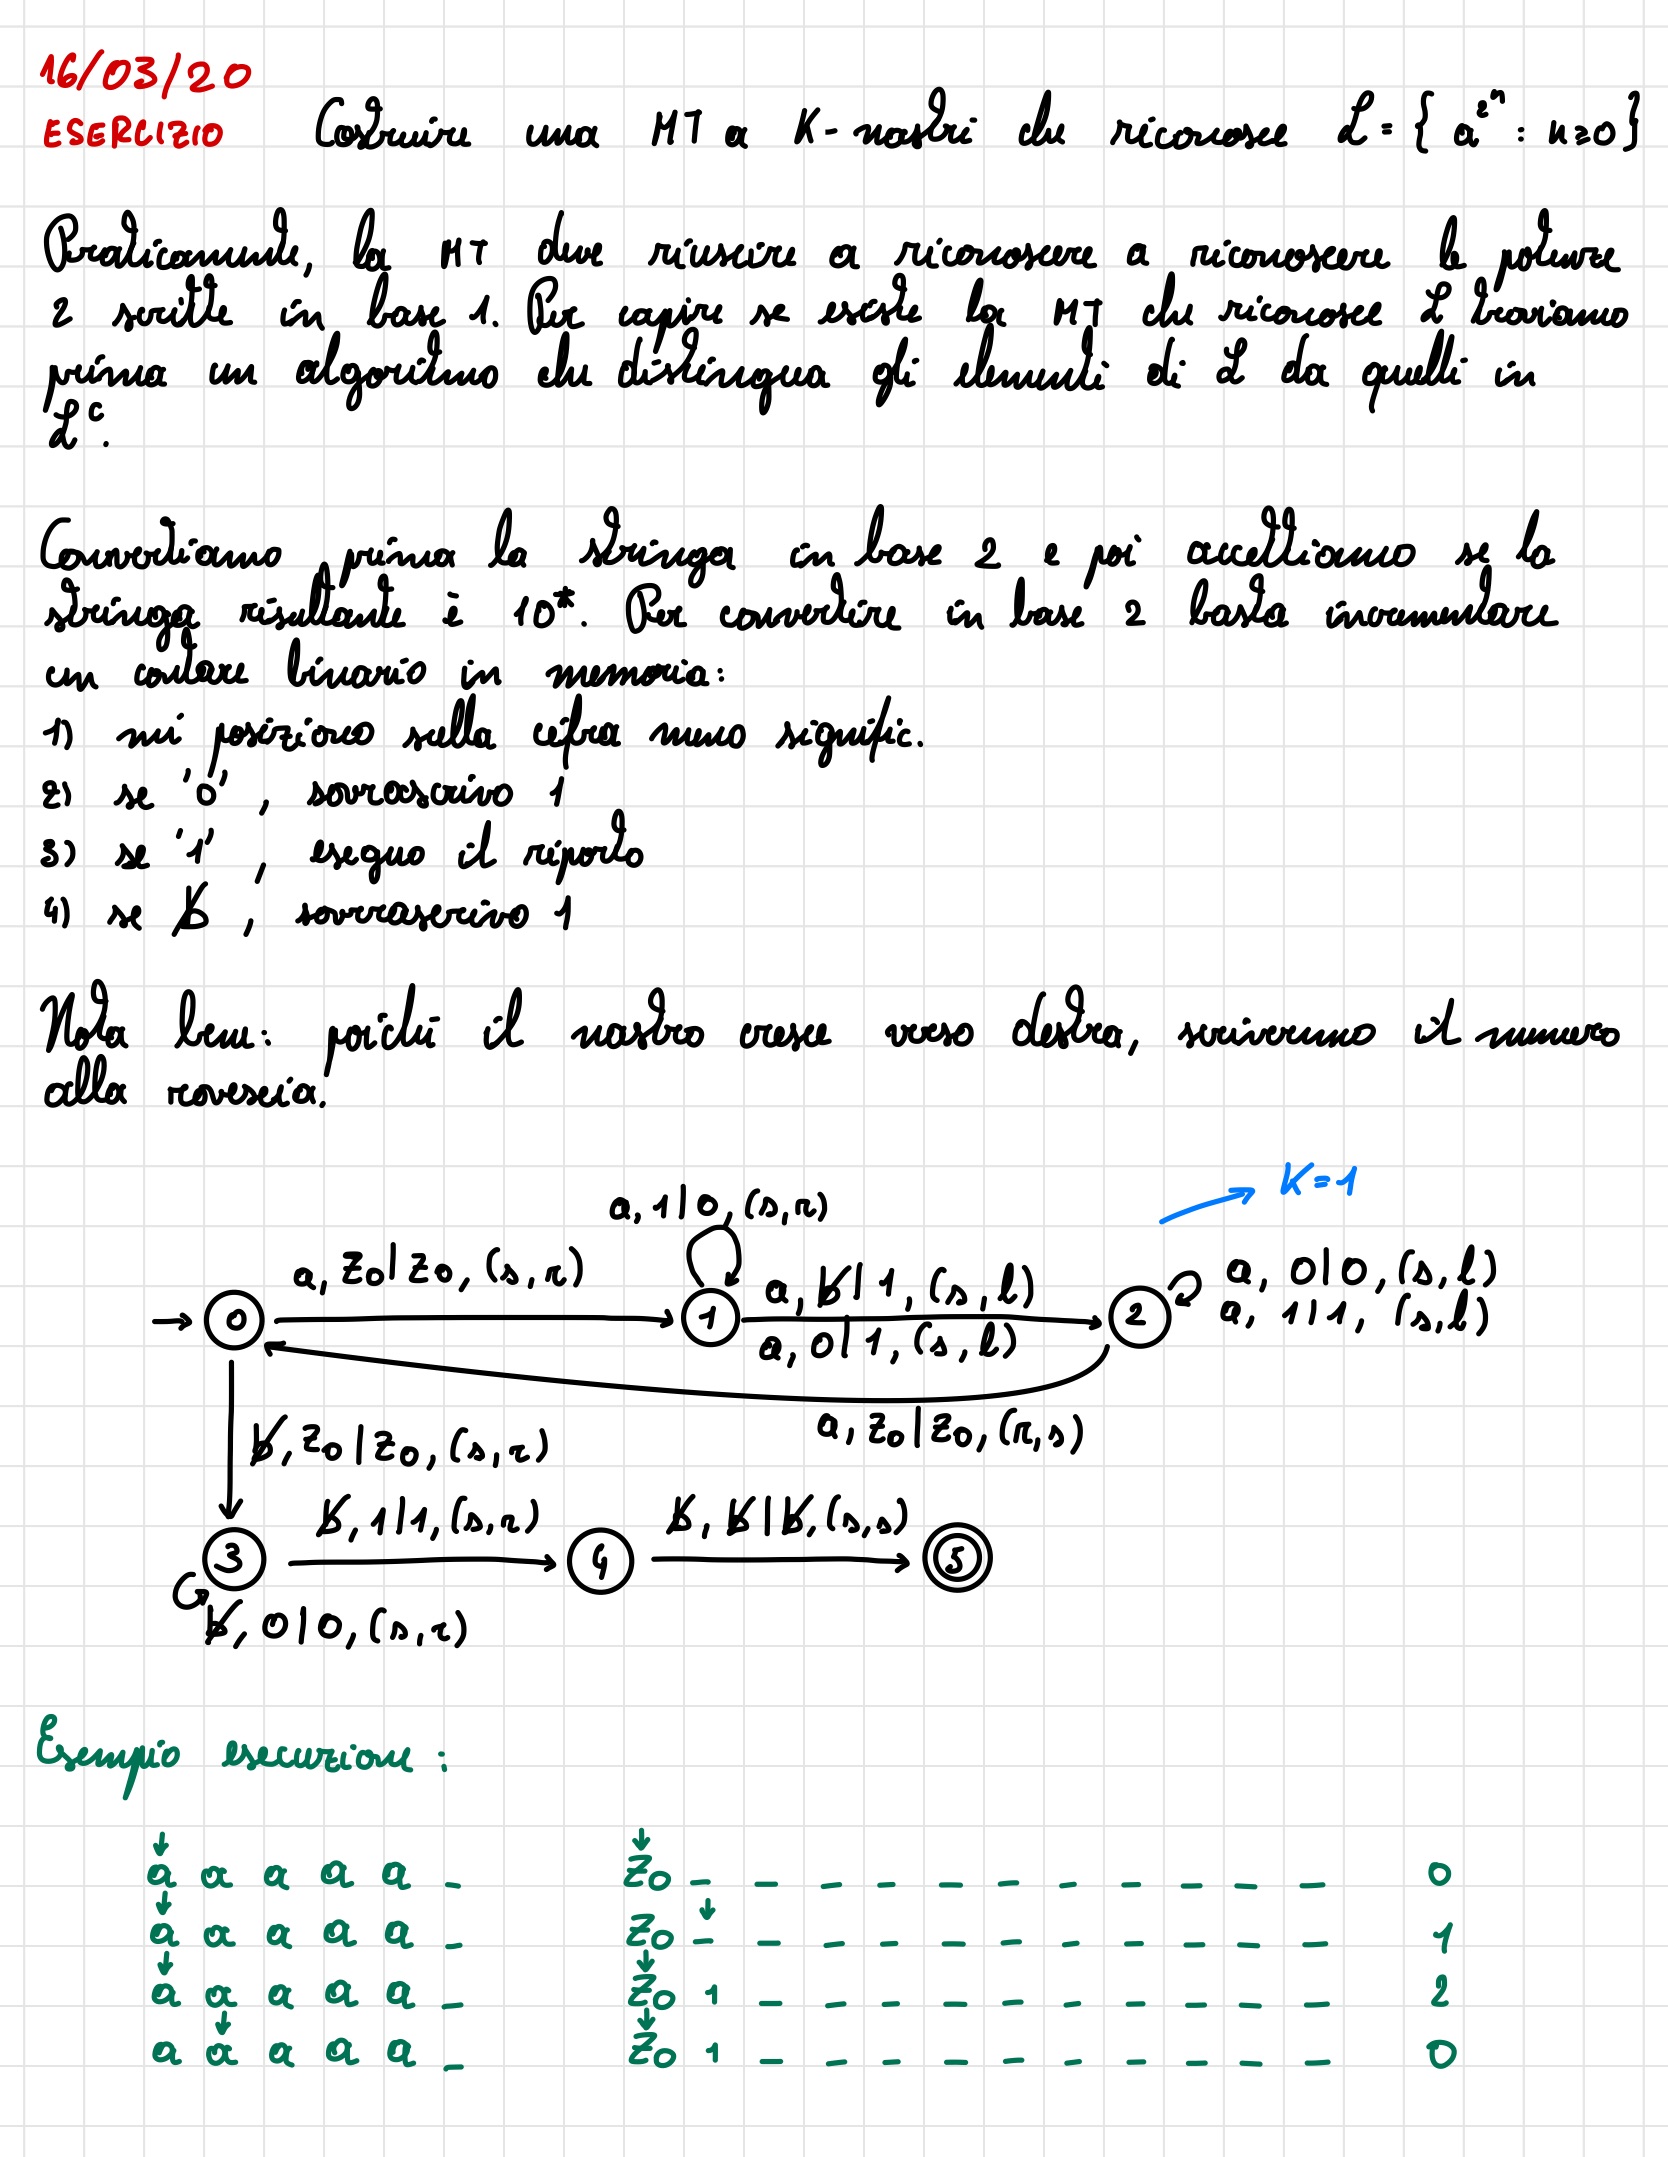 16/03/20
ESERCIZIO Costruire una MT a K-nastri che riconosce L = { a^2^n : n≥0}
Praticamente, la MT deve riuscire a riconoscere a riconoscere le potenze
2 scritte in base 1. Per capire se esiste la MT che riconosce L troviamo
prima un algoritmo che distingua gli elementi di L da quelli in
L^c.
Convertiamo prima la stringa in base 2 e poi accettiamo se la
stringa risultante è 10*. Per convertire in base 2 basta incrementare
un contare binario in memoria:
1) mi posiziono sulla cifra meno signific.
2) se '0', sovrascrivo 1
3) se '1', eseguo il riporto
4) se ƀ, sovrrascrivo 1
Nota bene: poiché il nastro cresce verso destra, scriveremo il numero
alla rovescia.
K=1
a, 1|0, (s,r)
a, Z0|Z0, (s,r)
a, ƀ|1, (s,l)
a, 0|1, (s,l)
a, 0|0, (s,l)
a, 1|1, (s,l)
→ 0 1 2
a, Z0|Z0, (r,s)
ƀ, Z0|Z0, (s,r)
ƀ, 1|1, (s,r)
ƀ, ƀ|ƀ, (s,s)
3 4 5
ƀ, 0|0, (s,r)
Esempio esecuzione:
a a a a a _ Z0 _ _ _ _ _ _ _ _ _ _ _ 0
a a a a a _ Z0 _ _ _ _ _ _ _ _ _ _ _ 1
a a a a a _ Z0 1 _ _ _ _ _ _ _ _ _ _ 2
a a a a a _ Z0 1 _ _ _ _ _ _ _ _ _ _ 0